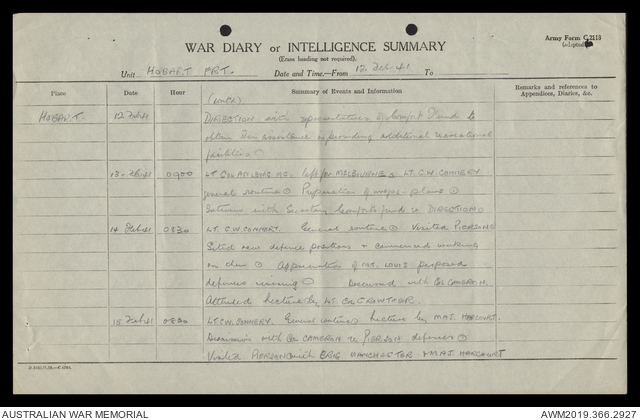 Army Form C.2118
(adapted)
WAR DIARY or INTELLIGENCE SUMMARY
(Erase heading not required).
Unit HOBART Date and Time—From 12 Feb 41 To
Place Date Hour Summary of Events and Information Remarks and references to Appendices, Diaries, &c.
HOBART. 12 Feb 41 DIRECTION with representatives of Comfort Funds to
obtain in providing additional recreational
facilities
13 Feb 41 0900 LT. left for MELBOURNE LT. C.W. CONNERY
general routine Preparation of plans
Interview with Secretary Comforts funds re DIRECTION
14 Feb 41 0830 LT. C.W. CONNERY. General routine Visited PIERSONS
Sited new defence positions + commenced working
on them Appreciation of MT. LOUIS proposed
defences Discussed with COL CAMERON.
Attended lecture by LT. COL CROWTHER.
15 Feb 41 0830 LT. C.W. CONNERY. General routine lecture by MAJ. HARCOURT.
Discussion with COL CAMERON re defences
Visited with BRIG MANCHESTER MAJ. HARCOURT
AUSTRALIAN WAR MEMORIAL AWM2019.366.2927